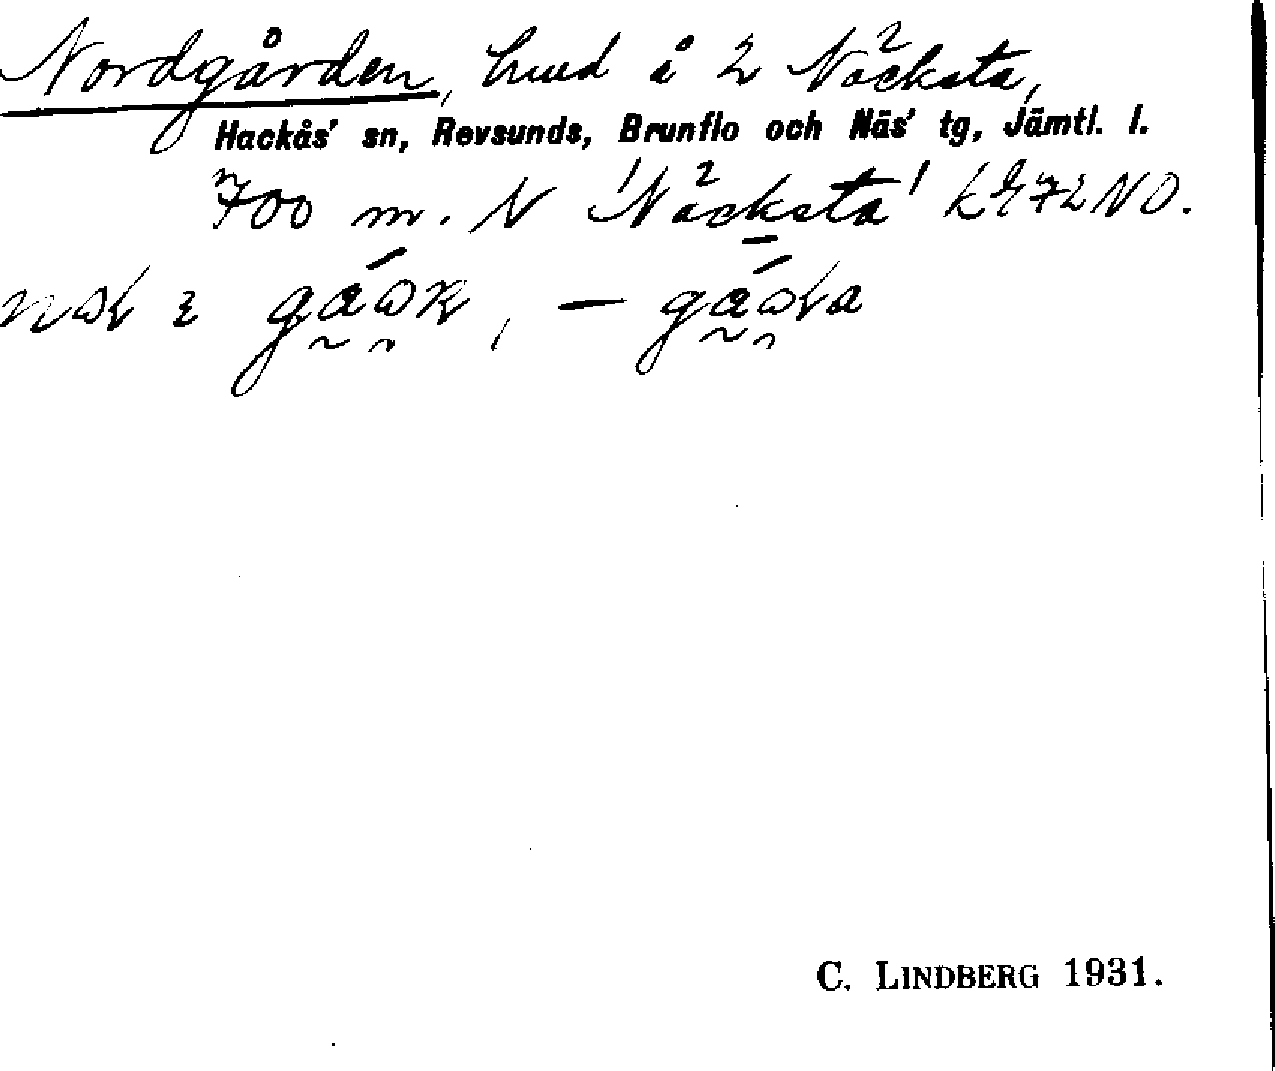 Nordgården, hmd i 2 Näcksta,
Hackås' sn, Revsunds, Brunflo och Näs' tg, Jämtl. l.
700 m. N 'Näcksta' 72 NO.
C. LINDBERG 1931.